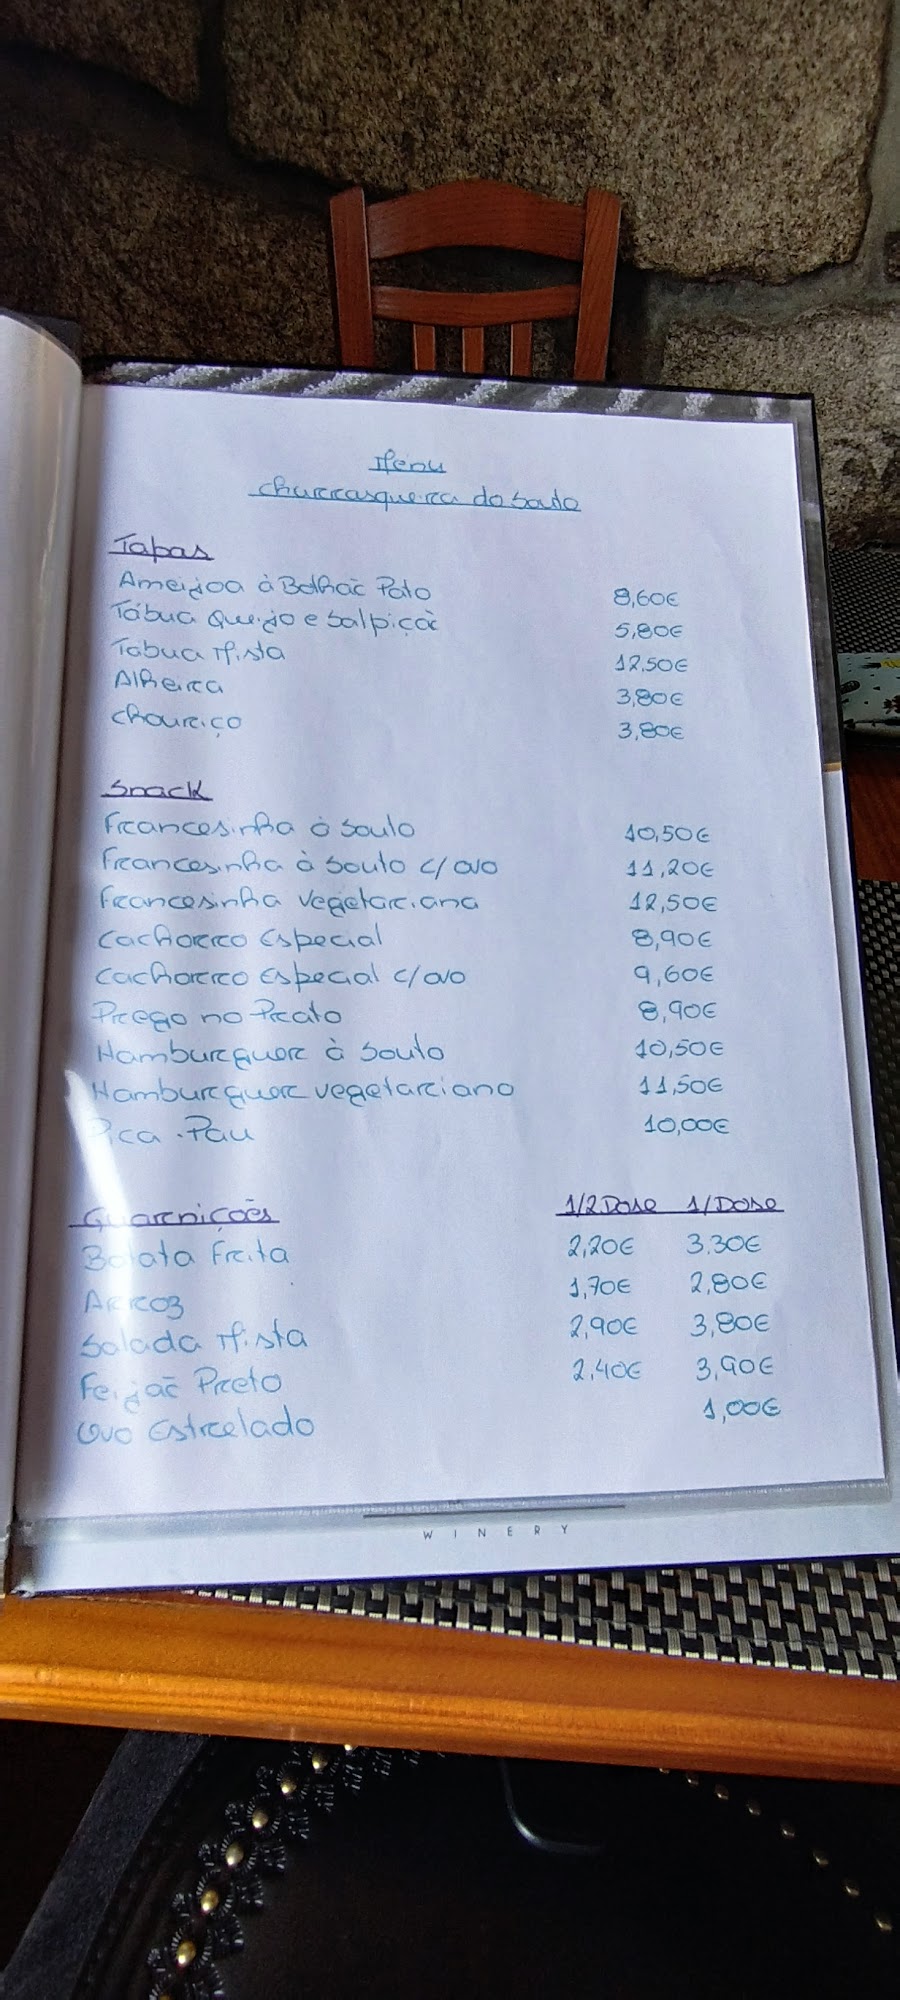 Menu
Churrasqueira do Souto
Tapas
Ameijoa à Bolhão Pato 8,60€
Tábua Queijo e Salpicão 5,80€
Tábua Mista 12.50€
Alheira 3,80€
Chouriço 3,80€
Snack
Francesinha à Souto 10,50€
Francesinha à Souto c/ ovo 11,20€
Francesinha Vegetariana 12,50€
Cachorro Especial 8,90€
Cachorro Especial c/ ovo 9,60€
Prego no Prato 8,90€
Hamburguer à Souto 10,50€
Hamburguer vegetariano 11,50€
Pica-Pau 10,00€
Guarnições 1/2 Dose 1/Dose
Batata Frita 2,20€ 3.30€
Arroz 1,70€ 2,80€
Salada Mista 2,90€ 3,80€
Feijão Preto 2.40€ 3,90€
Ovo Estrelado 1,00€
WINERY